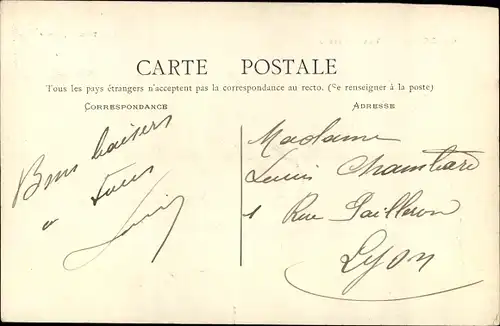 CARTE POSTALE
Tous les pays étrangers n'acceptent pas la correspondance au recto. (Se renseigner à la poste)
CORRESPONDANCE
ADRESSE
Bons baisers
a tous
Madame
Louis Chambard
1 Rue Pailleron
Lyon